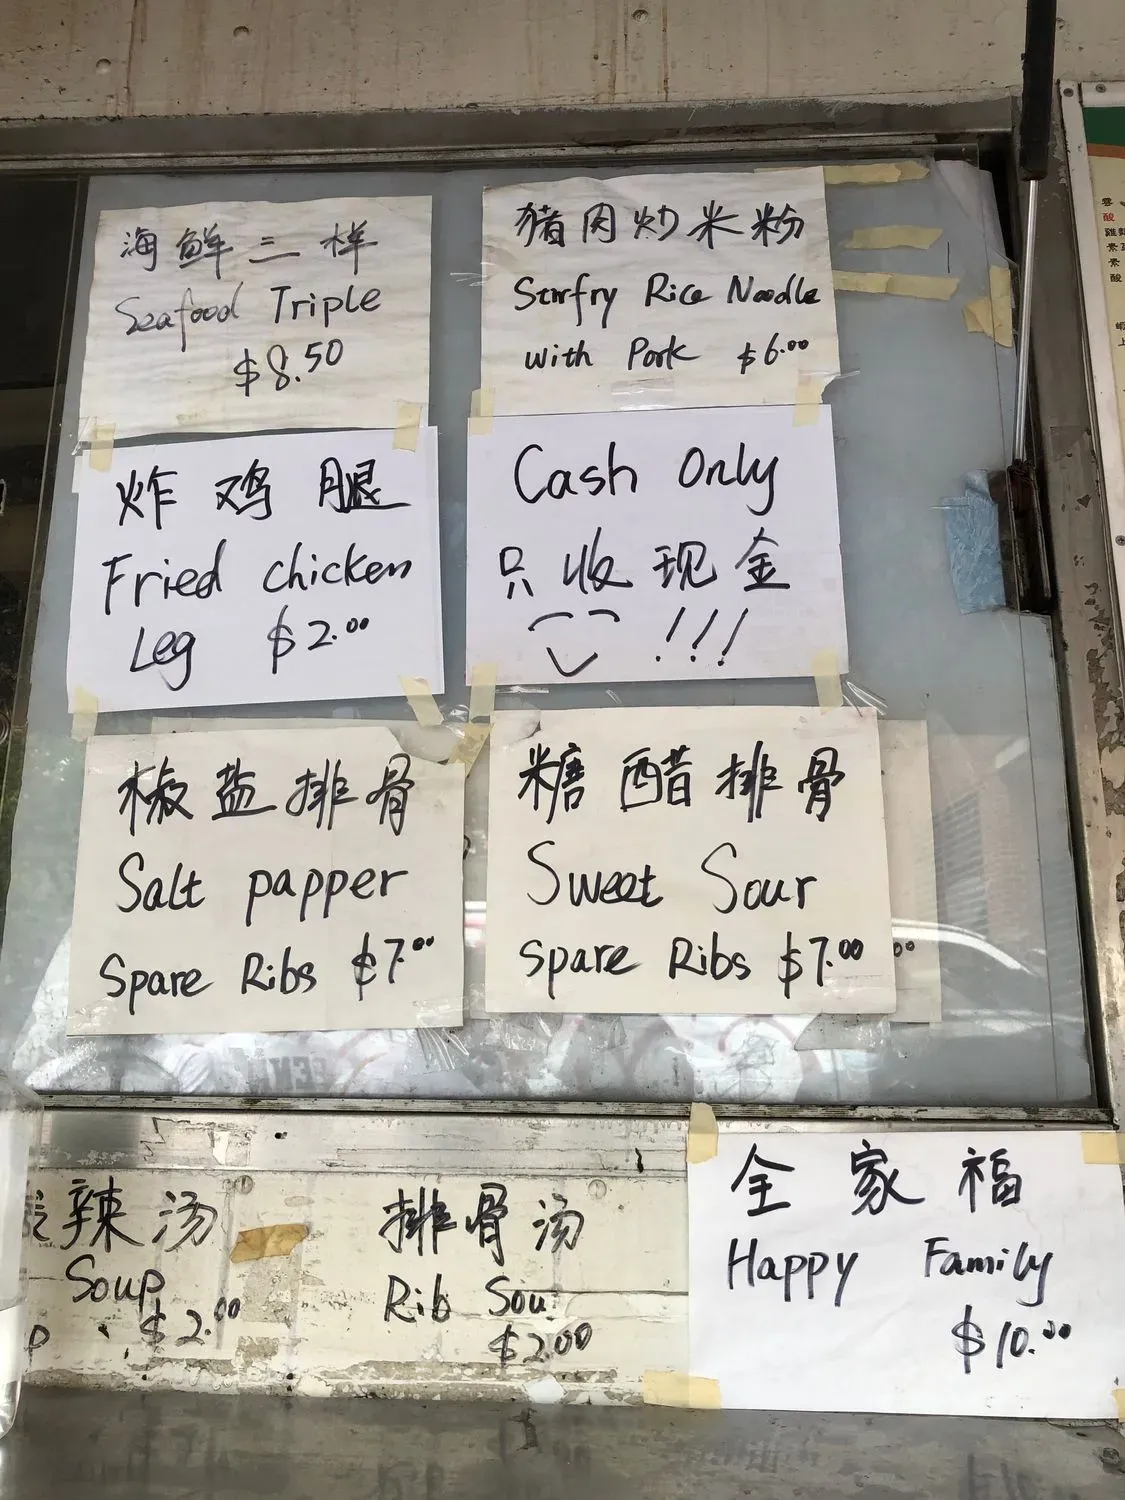 海鲜三样
Seafood Triple
$8.50
猪肉炒米粉
Stirfry Rice Noodle
with Pork $6.00
炸鸡腿
Fried chicken
Leg $2.00
Cash Only
只收现金
!!!
椒盐排骨
Salt papper
Spare Ribs $7.00
糖醋排骨
Sweet Sour
Spare Ribs $7.00
00
辣汤
Soup
$2.00
排骨汤
Rib Sou
$2.00
全家福
Happy Family
$10.00